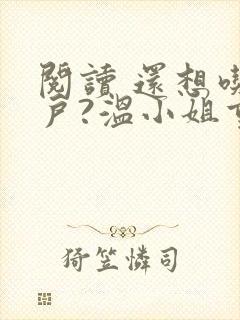 閱讀 還想喫
戶?溫小姐
猗笠憐司